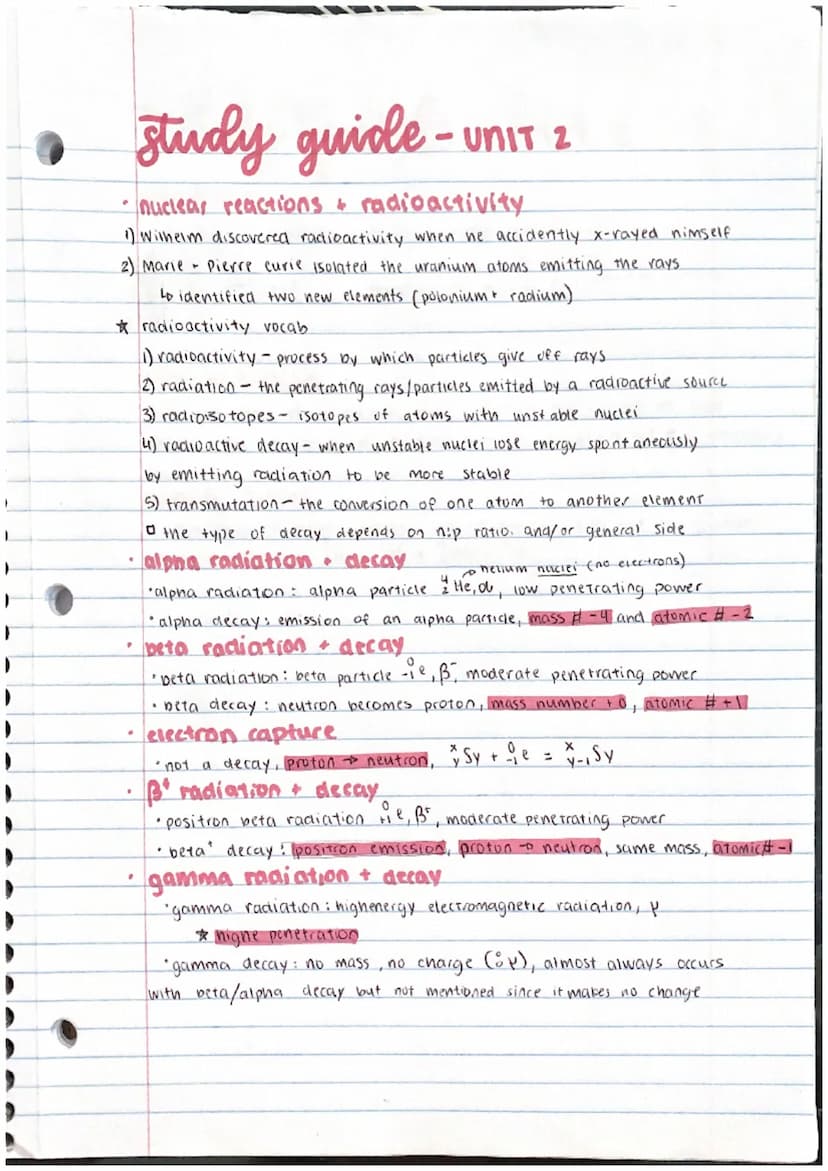 study guide - UNIT 2
· nuclear reactions + radioactivity
1) Wilhelm discovered radioactivity when he accidently x-rayed himself
2) Marie + Pierre curie isolated the uranium atoms emitting the rays
↳ identified two new elements (polonium + radium)
☆ radioactivity vocab
1) radioactivity - process by which particles give off rays
2) radiation - the penetrating rays/particles emitted by a radioactive source
3) radioisotopes - isotopes of atoms with unstable nuclei
4) radioactive decay - when unstable nuclei lose energy spontaneously
by emitting radiation to be more stable
5) transmutation - the conversion of one atom to another element
▫ the type of decay depends on n:p ratio. and/or general side
· alpha radiation + decay
→ helium nuclei (no electrons)
· alpha radiaton: alpha particle ⁴₂He, α, low penetrating power
· alpha decay: emission of an alpha particle, mass # -4 and atomic # -2
· beta radiation + decay
· beta radiation: beta particle ⁰₋₁e, β⁻, moderate penetrating power
· beta decay: neutron becomes proton, mass number + 0, atomic # +1
· electron capture
· not a decay, proton → neutron, ˣᵧSy + ⁰₋₁e = ˣᵧ₋₁Sy
· β⁺ radiation + decay
· positron beta radiation ⁰₊₁e, β⁺, moderate penetrating power
· beta⁺ decay: positron emission, proton → neutron, same mass, atomic# -1
· gamma radiation + decay
· gamma radiation: highenergy electromagnetic radiation, γ
☆ highe penetration
· gamma decay: no mass, no charge (⁰₀γ), almost always occurs
with beta/alpha decay but not mentioned since it makes no change